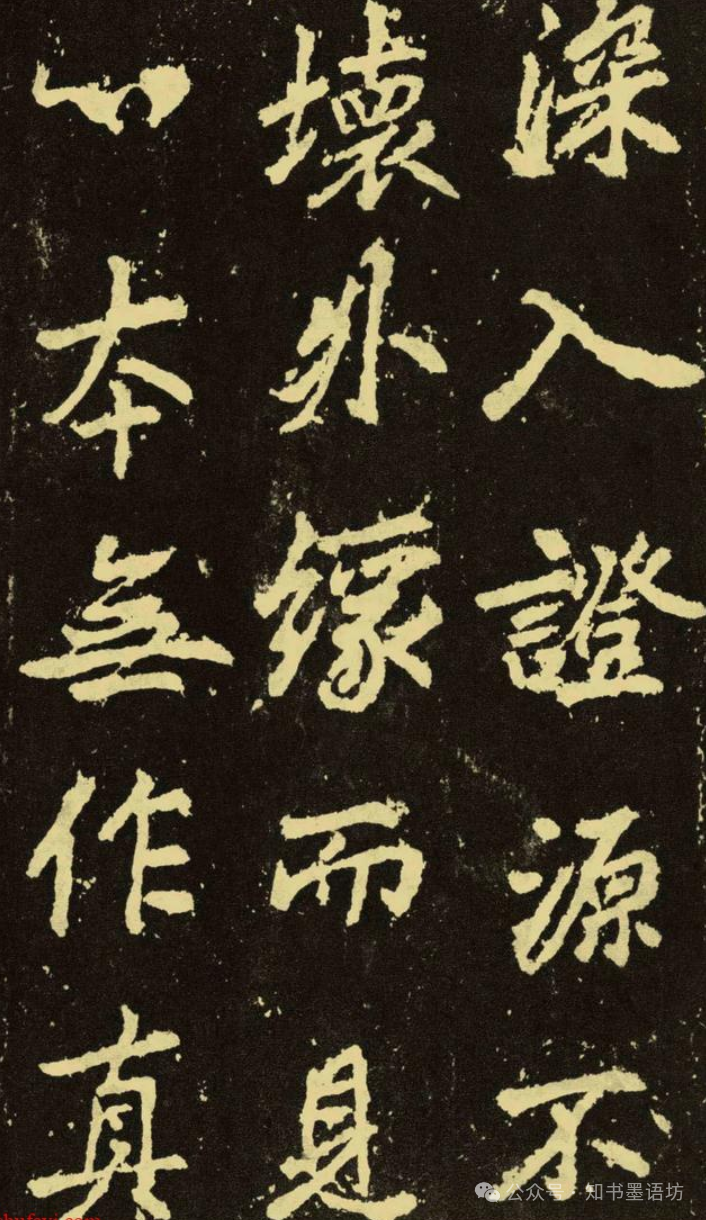 深入證源不
壞外緣而見
心本無作真
公众号·知书墨语坊